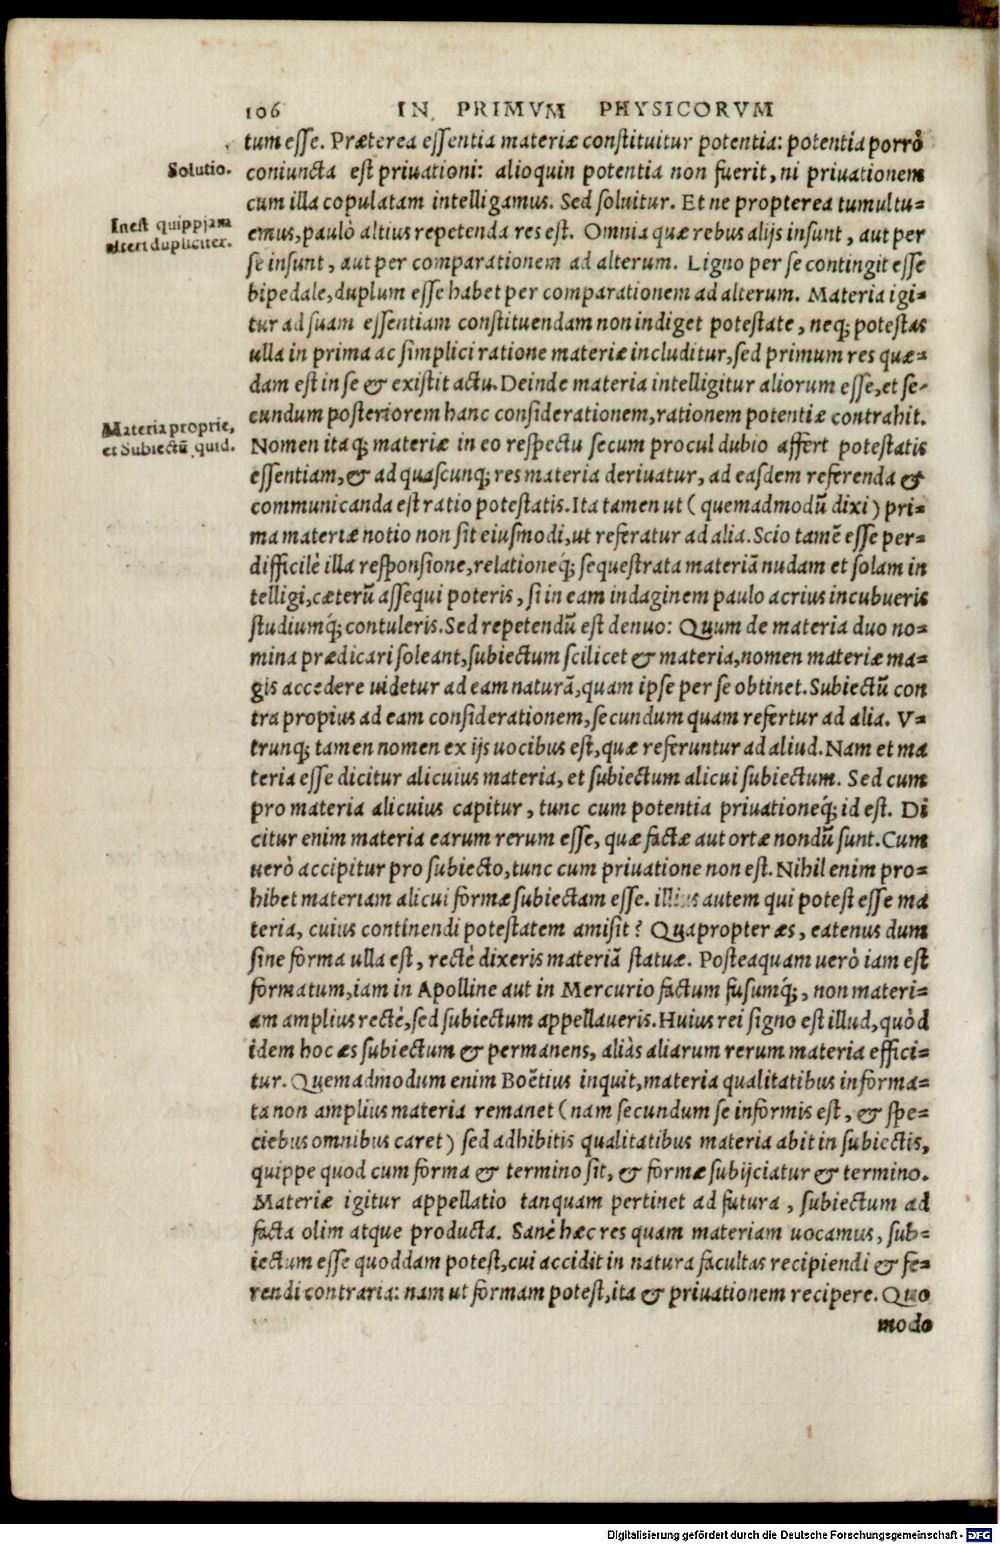 106 IN PRIMVM PHYSICORVM
tum esse. Præterea essentia materiæ constituitur potentia: potentia porrò
Solutio.
coniuncta est priuationi: alioquin potentia non fuerit, ni priuationem
cum illa copulatam intelligamus. Sed soluitur. Et ne propterea tumultu=
Inest quippiam
alteri dupliciter.
emus, paulò altius repetenda res est. Omnia quæ rebus alijs insunt, aut per
se insunt, aut per comparationem ad alterum. Ligno per se contingit esse
bipedale, duplum esse habet per comparationem ad alterum. Materia igi=
tur ad suam essentiam constituendam non indiget potestate, neq; potestas
ulla in prima ac simplici ratione materiæ includitur, sed primum res quæ=
dam est in se & existit actu. Deinde materia intelligitur aliorum esse, et se=
cundum posteriorem hanc considerationem, rationem potentiæ contrahit.
Materia proprie,
et Subiectū quid.
Nomen itaq; materiæ in eo respectu secum procul dubio affert potestatis
essentiam, & ad quascunq; res materia deriuatur, ad easdem referenda &
communicanda est ratio potestatis. Ita tamen ut (quemadmodū dixi) pri=
ma materiæ notio non sit eiusmodi, ut referatur ad alia. Scio tamē esse per=
difficilè illa responsione, relationeq́; sequestrata materiā nudam et solam in
telligi, cæterū assequi poteris, si in eam indaginem paulo acrius incubueris
studiumq́; contuleris. Sed repetendū est denuo: Quum de materia duo no=
mina prædicari soleant, subiectum scilicet & materia, nomen materiæ ma=
gis accedere uidetur ad eam naturā, quam ipse per se obtinet. Subiectū con
tra propius ad eam considerationem, secundum quam refertur ad alia. V=
trunq; tamen nomen ex ijs uocibus est, quæ referuntur ad aliud. Nam et ma
teria esse dicitur alicuius materia, et subiectum alicui subiectum. Sed cum
pro materia alicuius capitur, tunc cum potentia priuationeq́; id est. Di
citur enim materia earum rerum esse, quæ factæ aut ortæ nondū sunt. Cum
uerò accipitur pro subiecto, tunc cum priuatione non est. Nihil enim pro=
hibet materiam alicui formæ subiectam esse. illius autem qui potest esse ma
teria, cuius continendi potestatem amisit? Quapropter æs, eatenus dum
sine forma ulla est, rectè dixeris materiā statuæ. Posteaquam uerò iam est
formatum, iam in Apolline aut in Mercurio factum fusumq́;, non materi=
am amplius rectè, sed subiectum appellaueris. Huius rei signo est illud, quòd
idem hoc æs subiectum & permanens, aliàs aliarum rerum materia effici=
tur. Quemadmodum enim Boëtius inquit, materia qualitatibus informa=
ta non amplius materia remanet (nam secundum se informis est, & spe=
ciebus omnibus caret) sed adhibitis qualitatibus materia abit in subiectis,
quippe quod cum forma & termino sit, & formæ subijciatur & termino.
Materiæ igitur appellatio tanquam pertinet ad futura, subiectum ad
facta olim atque producta. Sanè hæc res quam materiam uocamus, sub=
iectum esse quoddam potest, cui accidit in natura facultas recipiendi & fe=
rendi contraria: nam ut formam potest, ita & priuationem recipere. Quo
modo
Digitalisierung gefördert durch die Deutsche Forschungsgemeinschaft - DFG